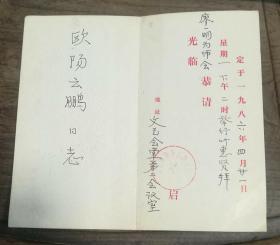 定于一九八六年四月廿一日
星期一下午二时举行叶惠贤拜
廖一鸣为师会
恭请
光临
启
地址文艺会堂第二会议室
欧阳云鹏同志